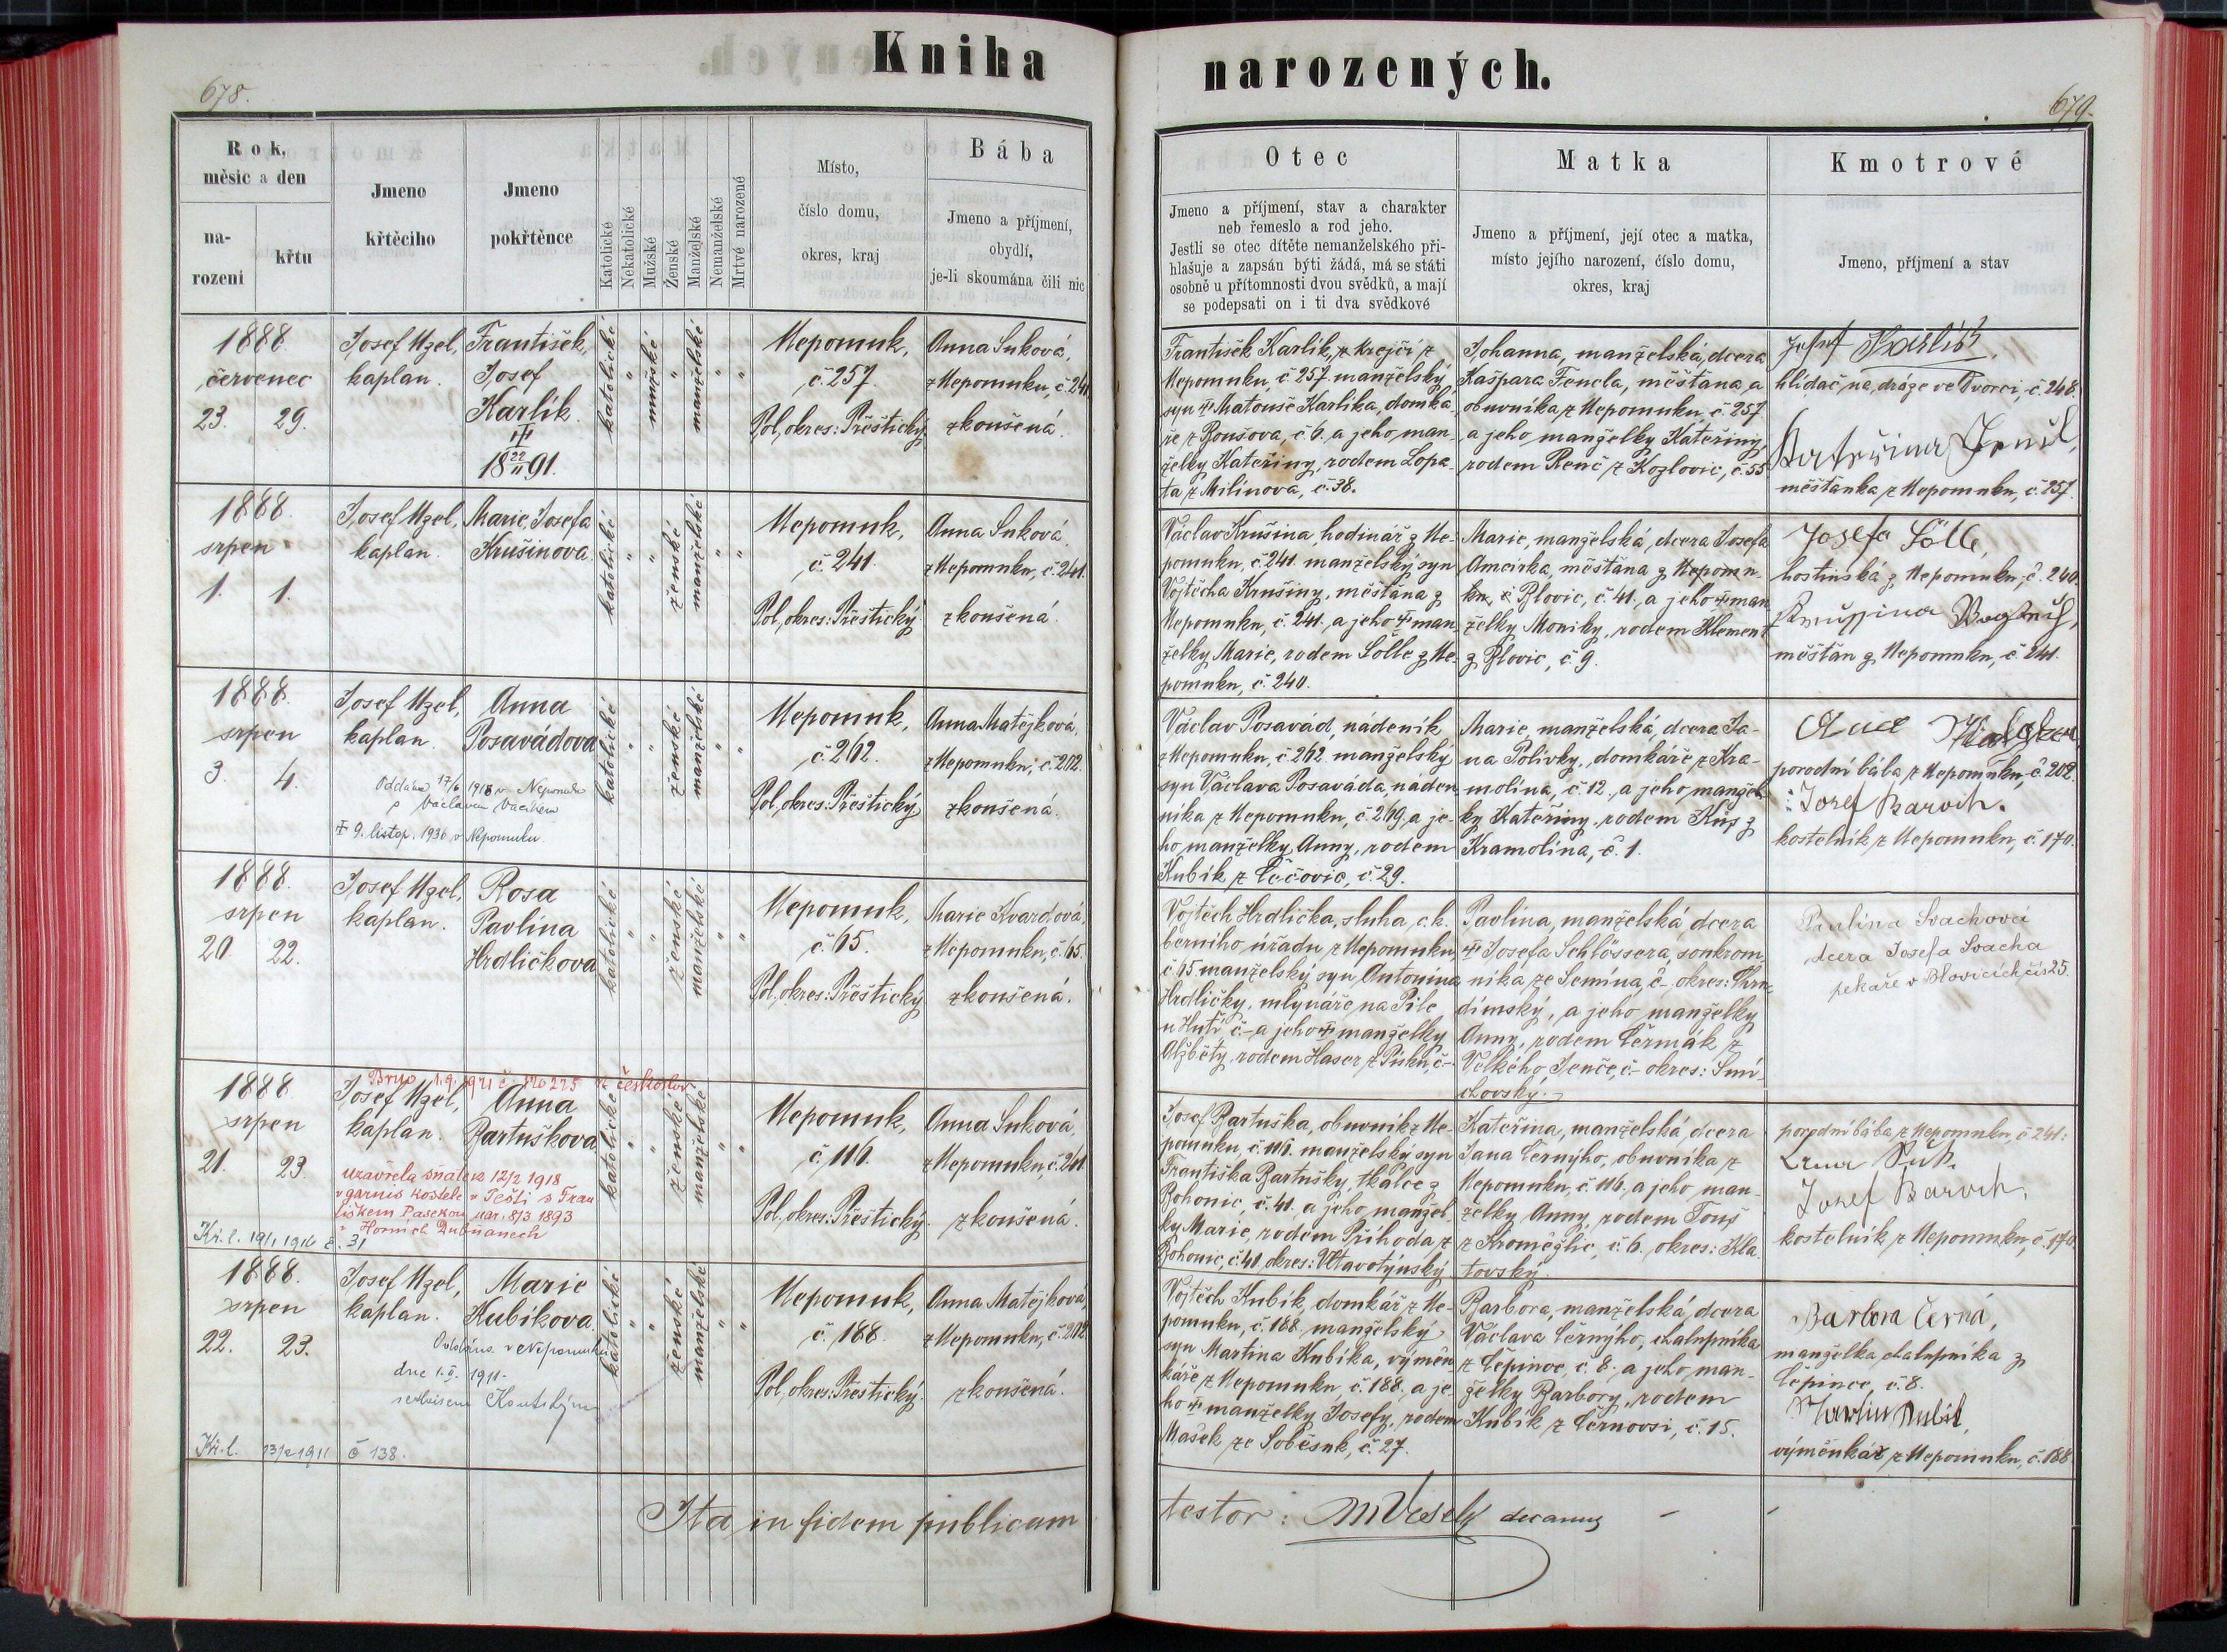 Kniha
678.
Rok,
měsíc a den
na-
rození
křtu
Jmeno
křtěcího
Jmeno
pokřtěnce
Katolické
Nekatolické
Mužské
Ženské
Manželské
Nemanželské
Mrtvě narozené
Místo,
číslo domu,
okres, kraj
Bába
Jmeno a příjmení,
obydlí,
je-li skoumána čili nic
1888.
červenec
23. 29.
Josef Uzel,
kaplan.
František,
Josef
Karlík.
18 22/II 91.
katolické " mužské " manželské " "
Nepomuk,
č. 257.
Pol. okres: Přeštický.
Anna Suková,
z Nepomuku, č. 241
zkoušená.
1888.
srpen
1. 1.
Josef Uzel,
kaplan.
Marie, Josefa
Krušinova.
katolické " " ženské manželské " "
Nepomuk,
č. 241.
Pol. okres: Přeštický
Anna Suková,
z Nepomuku, č. 241.
zkoušená.
1888.
srpen
3. 4.
Josef Uzel,
kaplan.
Anna
Posavádova
Oddána 17/6 1918 v Nepomuku
s Václavem
9. listop. 1936 v Nepomuku
katolické " " ženské manželské " "
Nepomuk,
č. 262.
Pol. okres: Přeštický
Anna Matějková,
z Nepomuku, č. 202.
zkoušená.
1888.
srpen
20. 22.
Josef Uzel,
kaplan.
Rosa
Pavlina
Hrdličkova
katolické " " ženské manželské " "
Nepomuk,
č. 65.
Pol. okres: Přeštický
Marie Kvardová,
z Nepomuku, č. 65.
zkoušená.
Brno 1.9. 1921 č.
1888.
srpen
21. 23.
Josef Uzel,
kaplan.
Anna
Bartuškova
uzavřela sňatek 12/2 1918
v garnis kostele v Pešti s Fran
tiškem Pasekou nar. 8/3 1893
v Horních Dubňanech
Kř. l. 19/1 1916 č. 31
katolické " " ženské manželské " "
Nepomuk,
č. 116.
Pol. okres: Přeštický.
Anna Suková,
z Nepomuku, č. 241
zkoušená.
1888.
srpen
22. 23.
Josef Uzel,
kaplan.
Marie
Kubíkova.
Oddána v Nepomuku
dne 1. 1911
Koutským
Kř. l. 13/2 1911 č 138.
katolické " " ženské manželské " "
Nepomuk,
č. 188.
Pol. okres: Přeštický.
Anna Matějková,
z Nepomuku, č. 202
zkoušená.
Ita in fidem publicam
narozených.
679.
Otec
Jmeno a příjmení, stav a charakter
neb řemeslo a rod jeho.
Jestli se otec dítěte nemanželského při-
hlašuje a zapsán býti žádá, má se státi
osobně u přítomnosti dvou svědků, a mají
se podepsati on i ti dva svědkové
Matka
Jmeno a příjmení, její otec a matka,
místo jejího narození, číslo domu,
okres, kraj
Kmotrové
Jmeno, příjmení a stav
František Karlík, krejčí z
Nepomuku, č. 257. manželský
syn Matouše Karlíka, domká-
ře z Boušova, č. 6. a jeho man-
želky Kateřiny, rodem Lopa-
ta z Milínova, č. 38.
Johanna, manželská dcera
Kašpara Fencla, měšťana a
obuvníka z Nepomuku, č. 257
a jeho manželky Kateřiny,
rodem Renč z Kozlovic, č. 55
Josef Karlík,
hlídač na dráze ve Dvorci, č. 248.
Kateřina
měšťanka z Nepomuku, č. 257.
Václav Krušina, hodinář z Ne-
pomuku, č. 241. manželský syn
Vojtěcha Krušiny, měšťana z
Nepomuku, č. 241. a jeho man-
želky Marie, rodem Sölle z Ne-
pomuku, č. 240.
Marie, manželská, dcera Josefa
měšťana z Nepomu-
ku, č. Blovic, č. 41., a jeho man-
želky Moniky, rodem Klement
z Blovic, č. 9.
Josefa Sölle,
hostinská z Nepomuku, č. 240.
měšťan z Nepomuku, č. 241.
Václav Posavád, nádeník
z Nepomuku, č. 262. manželský
syn Václava Posaváda, náden-
níka z Nepomuku, č. 269, a je-
ho manželky Anny, rodem
Kubík z Čečovic, č. 29.
Marie, manželská, dcera Ja-
na Polívky, domkáře z Kra-
molína, č. 12., a jeho manžel-
ky Kateřiny, rodem
Kramolína, č. 1.
porodní bába z Nepomuku, č. 202.
Josef Barvič.
kostelník z Nepomuku, č. 170.
Vojtěch Hrdlička, sluha c. k.
berního úřadu z Nepomuku,
č. 65 manželský syn Antonína
Hrdličky, mlynáře na Pile
u Hutí č.- a jeho manželky
Alžběty, rodem Haser z Písku, č.-
Pavlina, manželská dcera
Josefa Schlössera, soukrom-
níka ze Semína, č.- okres: Chru-
dimský, a jeho manželky
Anny, rodem Čermák z
Velkého Jenče, č.- okres: Smí-
chovský.
Paulina Svachová
dcera Josefa Svacha
pekaře v Blovicích čís 25.
Josef Bartuška, obuvník z Ne-
pomuku, č. 116. manželský syn
Františka Bartušky, tkalce z
Bohonic, č. 41. a jeho manžel-
ky Marie, rodem Příhoda z
Bohonic, č. 41. okres: Vltavotýnský
Kateřina, manželská dcera
Jana Černýho, obuvníka z
Nepomuku, č. 116. a jeho man-
želky Anny, rodem Touš
z Kroměžlic, č. 6. okres: Kla-
tovský.
porodní bába z Nepomuku, č. 241:
Josef Barvič,
kostelník z Nepomuku, č. 170.
Vojtěch Kubík, domkář z Ne-
pomuku, č. 188. manželský
syn Martina Kubíka, výměn-
káře z Nepomuku, č. 188. a je-
ho manželky Josefy, rodem
Mašek ze Soběsuk, č. 27.
Barbora, manželská, dcera
Václava Černýho, chalupníka
z Čepince, č. 8. a jeho man-
želky Barbory, rodem
Kubík z Černovsi, č. 15.
Barbora Černá,
manželka chalupníka z
Čepince, č. 8.
Martin Kubík,
výměnkář z Nepomuku, č. 188
testor: decanus